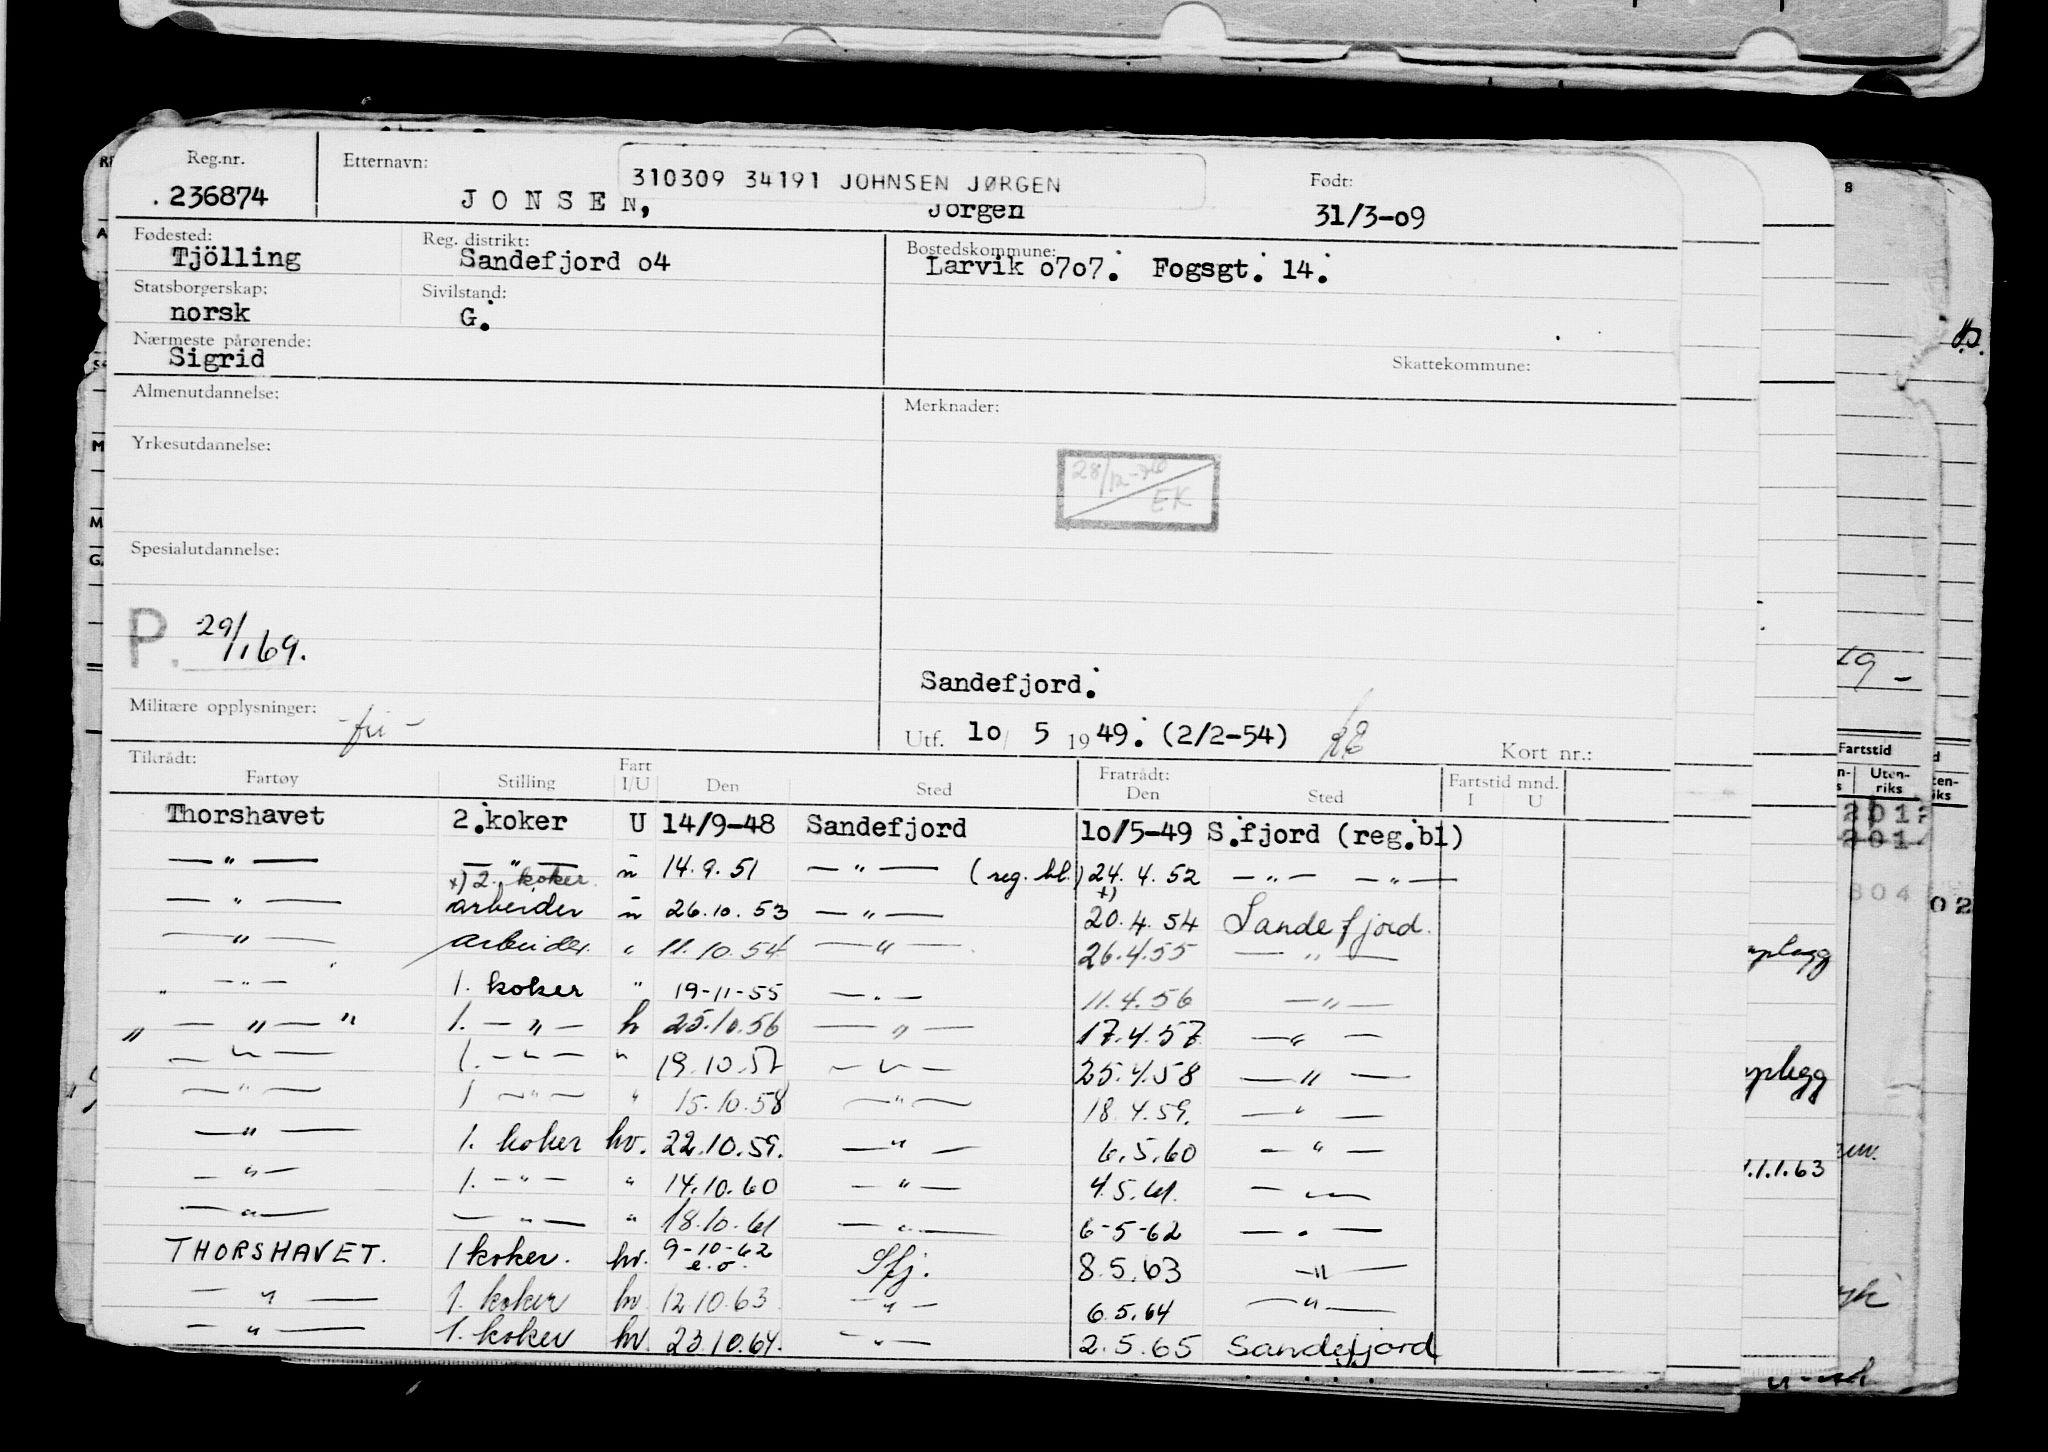 Reg.nr. Etternavn: 310309 34191 JOHNSEN JØRGEN Født:
.236874 JONSEN, Jörgen 31/3-09
Fødested: Reg. distrikt: Bostedskommune:
Tjölling Sandefjord o4 Larvik o7o7. Fogsgt. 14.
Statsborgerskap: Sivilstand:
norsk G.
Nærmeste pårørende:
Sigrid Skattekommune:
Almenutdannelse: Merknader:
Yrkesutdannelse:
28/12-70
EK
Spesialutdannelse:
P. 29/11 69.
Sandefjord.
Militære opplysninger: -fri-
Utf. 1o/ 5 1949. (2/2-54) Kort nr.:
Tilrådt: Fart Fratrådt: Fartstid mnd.
Fartøy Stilling I/U Den Sted Den Sted I U
Thorshavet 2.koker U 14/9-48 Sandefjord 1o/5-49 S.fjord (reg.bl)
—"— —"— " 14.9.51 —"— (reg. bl.) 24.4.52 —"— —"—
x) 2. koker x)
—"— arbeider " 26.10.53 —"— 20.4.54 Sandefjord.
—"— arbeider " 11.10.54 —"— 26.4.55 —"—
—"— 1. koker " 19-11-55 —"— 11.4.56 —"—
" —"— " 1. —"— h 25.10.56 —"— 17.4.57 —"—
—"— 1. —"— " 19.10.57 —"— 25.4.58 —"—
—"— 1 —"— " 15.10.58 —"— 18.4.59. —"—
—"— 1. koker hv. 22.10.59. —"— 6.5.60 —"—
—"— 1. —"— " 14.10.60 —"— 4.5.61. —"—
—"— —"— " 18.10.61 —"— 6-5-62 —"—
THORSHAVET. 1 koker. hv. 9-10-62 Sfj. 8.5.63 —"—
e.o.
—"— 1. koker hv. 12.10.63 —"— 6.5.64 —"—
—"— 1. koker hv. 23.10.64. —"— 2.5.65 Sandefjord
8
Fartstid
Uten-
riks
201
804
02
1.1.63